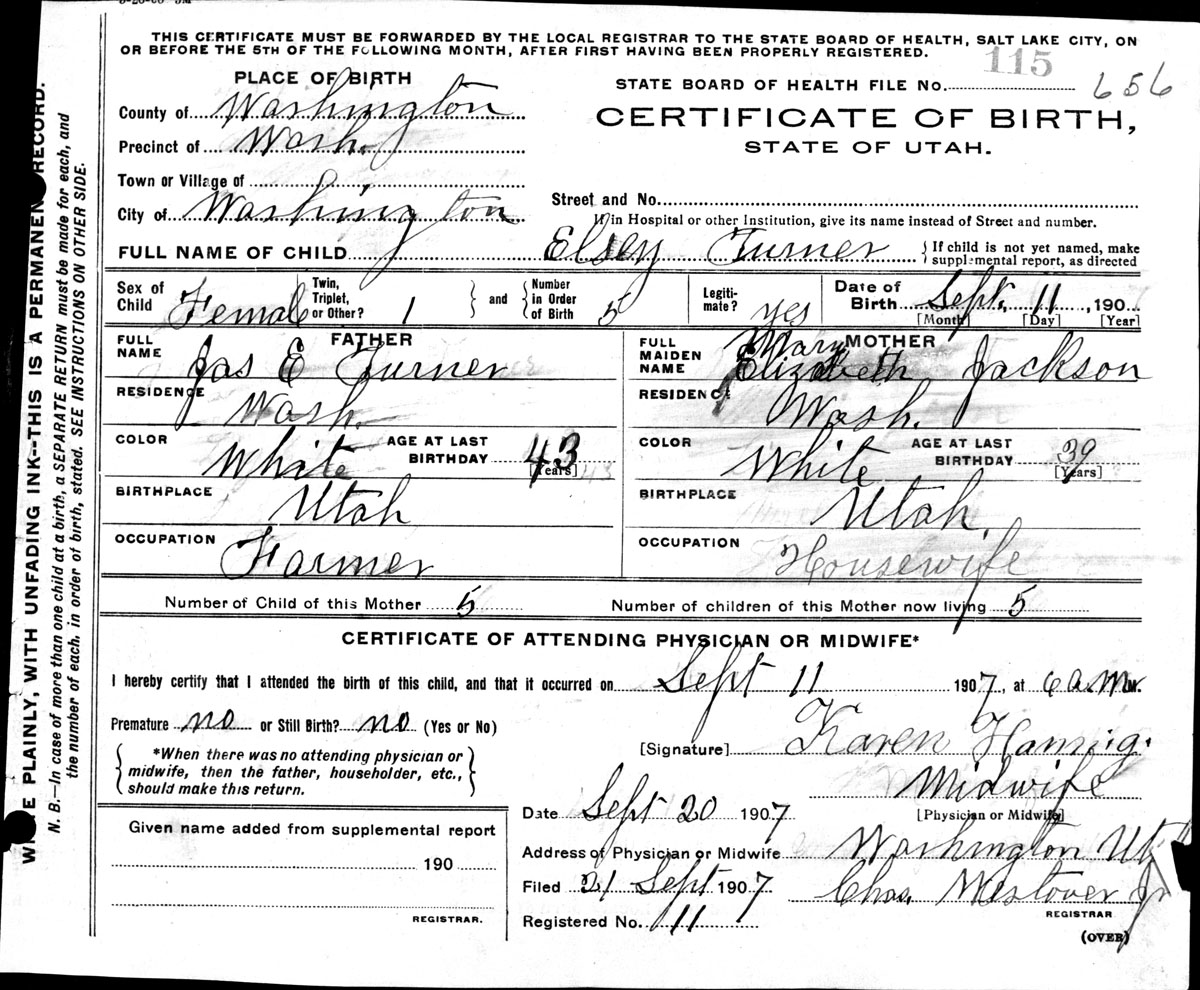 THIS CERTIFICATE MUST BE FORWARDED BY THE LOCAL REGISTRAR TO THE STATE BOARD OF HEALTH, SALT LAKE CITY, ON
OR BEFORE THE 5TH OF THE FOLLOWING MONTH, AFTER FIRST HAVING BEEN PROPERLY REGISTERED.
115
PLACE OF BIRTH
STATE BOARD OF HEALTH FILE No. 656
County of Washington
CERTIFICATE OF BIRTH,
Precinct of Wash.
STATE OF UTAH.
Town or Village of
Street and No.
City of Washington
If in Hospital or other Institution, give its name instead of Street and number.
FULL NAME OF CHILD Elsey Turner { If child is not yet named, make
supplemental report, as directed
Sex of Child Female Twin, Triplet, or Other? 1 } and { Number in Order of Birth 5 Legiti-mate? yes Date of Birth Sept. 11, 190
[Month] [Day] [Year]
FATHER
FULL NAME Jas E Turner
RESIDENCE Wash.
COLOR White AGE AT LAST BIRTHDAY 43
[Years]
BIRTHPLACE Utah
OCCUPATION Farmer
MOTHER
FULL MAIDEN NAME Mary Elizabeth Jackson
RESIDENCE Wash.
COLOR White AGE AT LAST BIRTHDAY 39
[Years]
BIRTHPLACE Utah.
OCCUPATION Housewife
Number of Child of this Mother 5 Number of children of this Mother now living 5
CERTIFICATE OF ATTENDING PHYSICIAN OR MIDWIFE*
I hereby certify that I attended the birth of this child, and that it occurred on Sept 11 1907, at 6 a.m M.
Premature no or Still Birth? no (Yes or No)
[Signature] Karen
*When there was no attending physician or
midwife, then the father, householder, etc.,
should make this return.
Midwife
[Physician or Midwife]
Date Sept 20 1907
Given name added from supplemental report
190
REGISTRAR.
Address of Physician or Midwife Washington Ut
Filed 21 Sept 1907 Chas. Westover Jr
REGISTRAR
Registered No. 11
(OVER)
PLAINLY, WITH UNFADING INK--THIS IS A PERMANENT RECORD.
N. B.—In case of more than one child at a birth, a SEPARATE RETURN must be made for each, and
the number of each, in order of birth, stated. SEE INSTRUCTIONS ON OTHER SIDE.